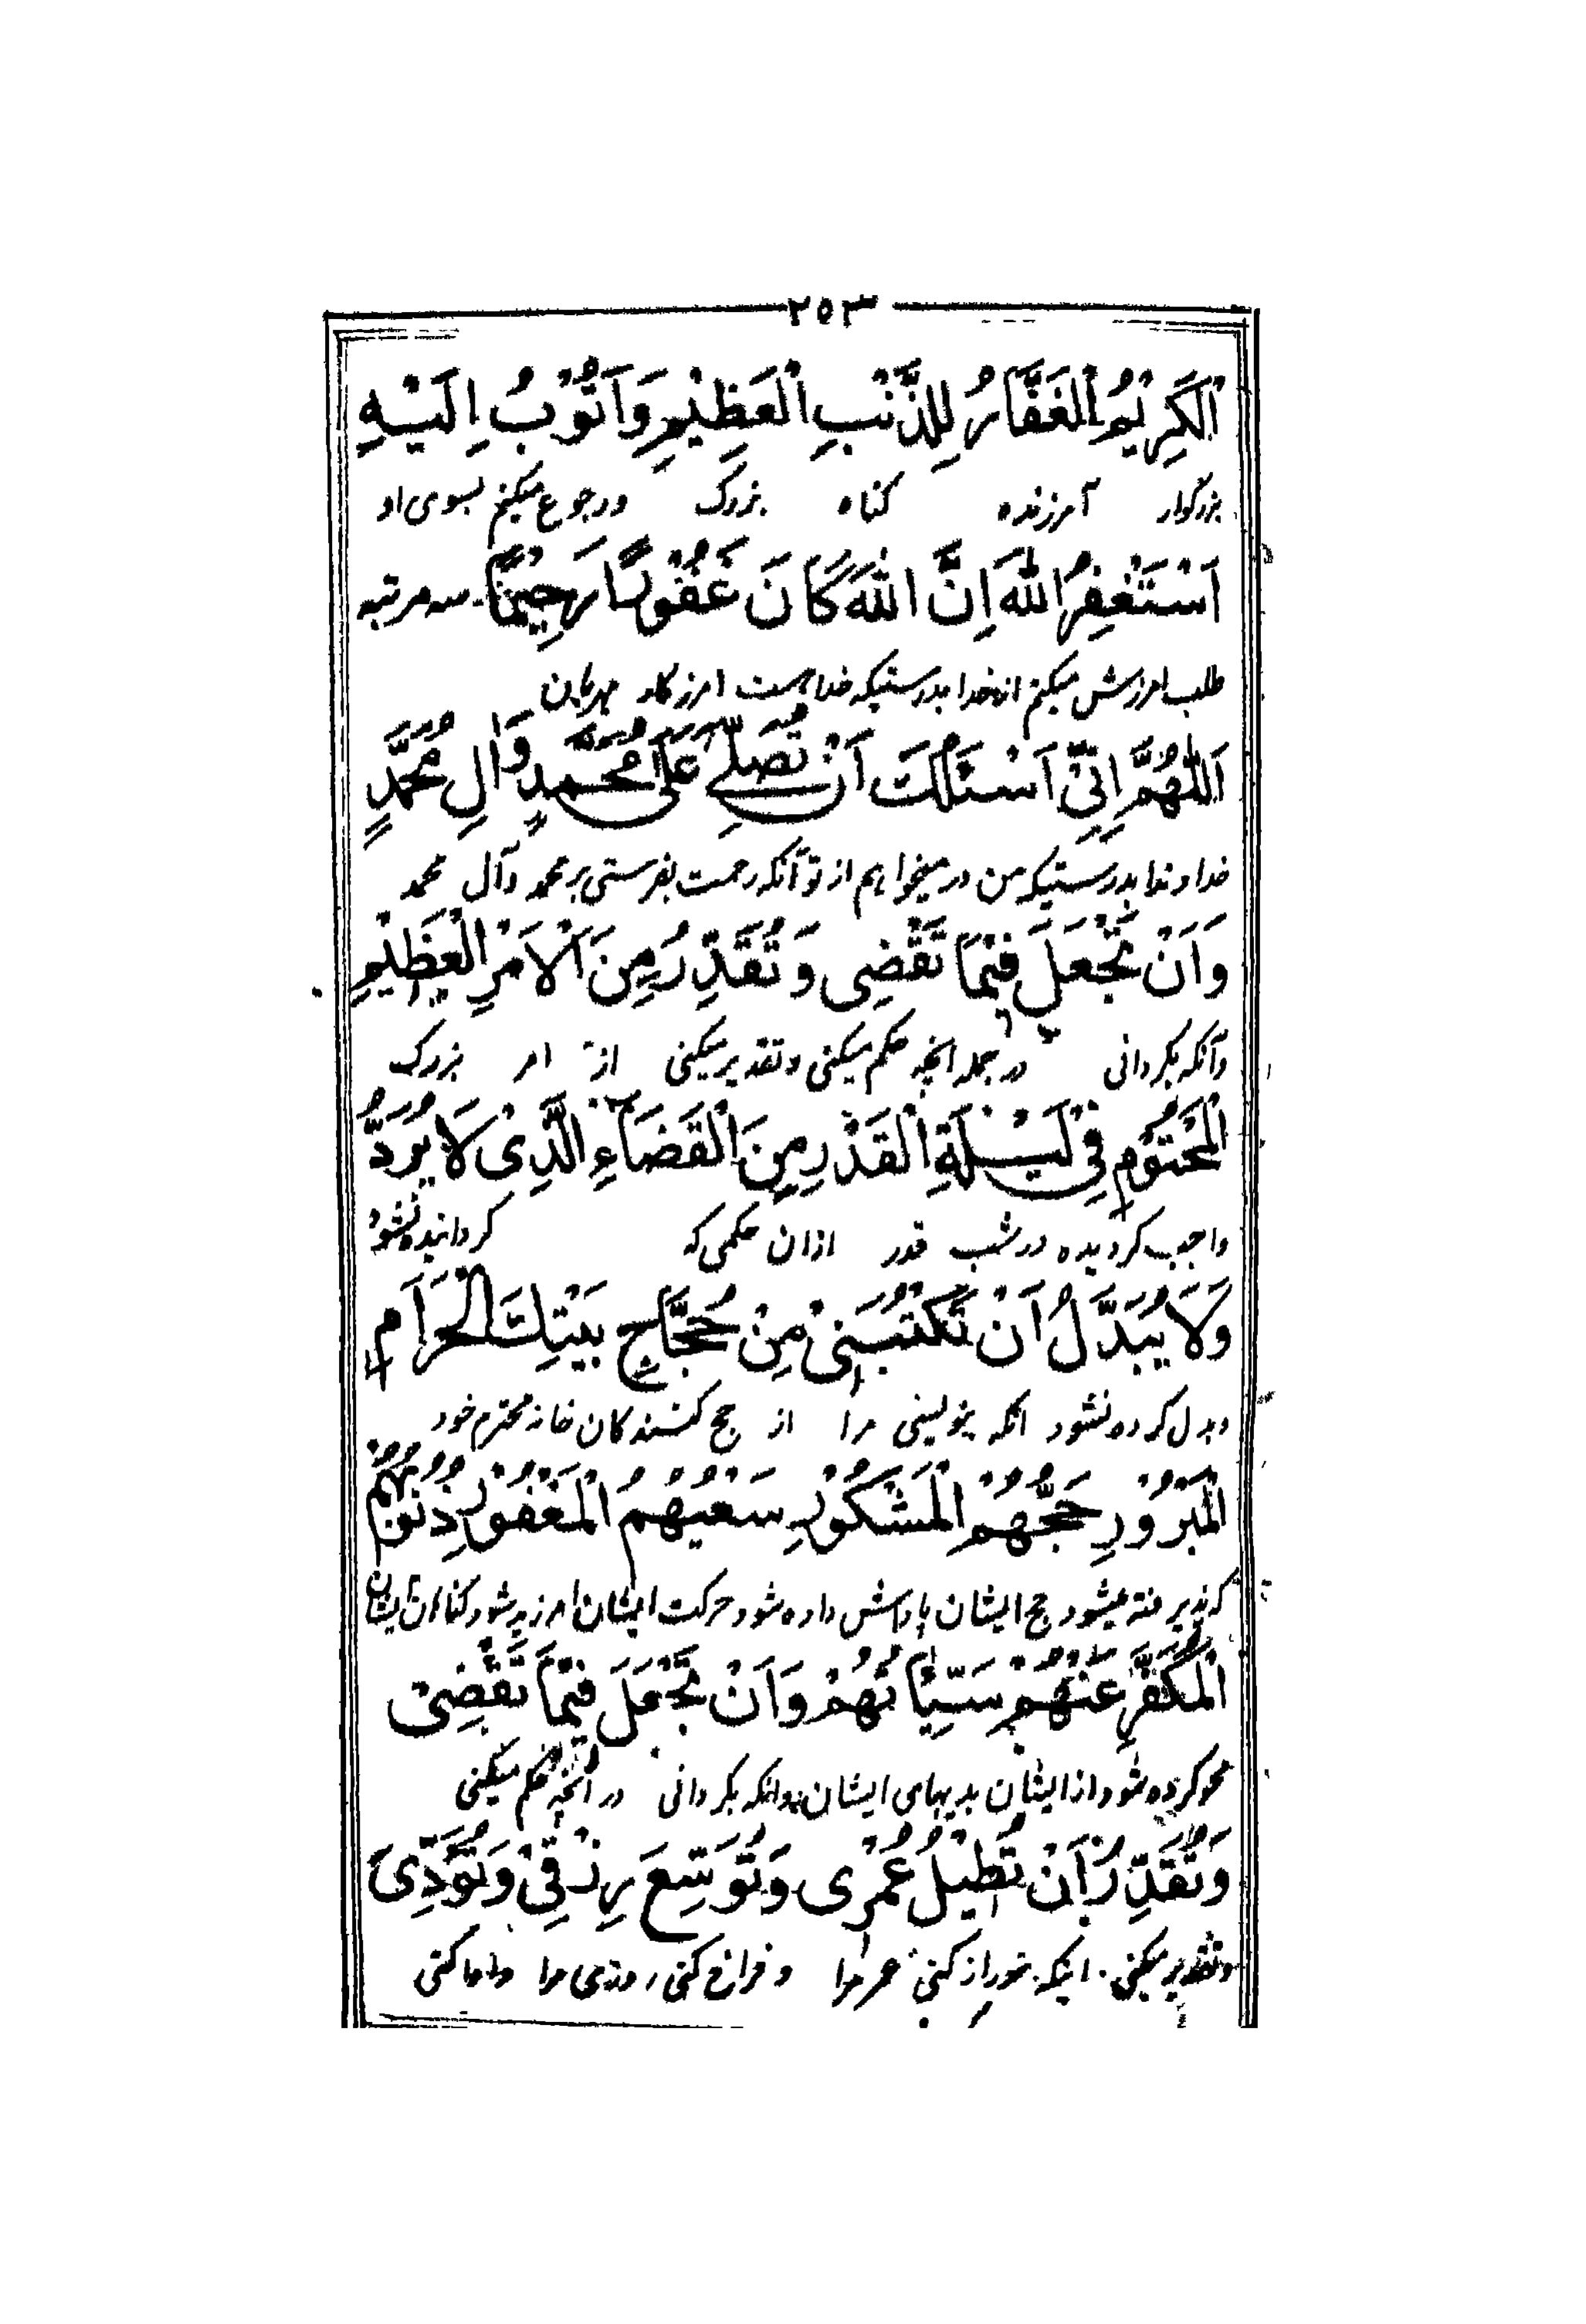 ۲۵۳
اَلْكَرِيْمُ الْغَفَّارُ لِلذَّنْبِ الْعَظِيْمِ وَاَتُوْبُ اِلَيْهِ
بزرگوار آمرزنده گناه بزرگ ورجوع میکنم بسوی او
اَسْتَغْفِرُ اللهَ اِنَّ اللهَ كَانَ غَفُوْرًا رَحِيْمًا سه مرتبه
طلب امرزش میکنم از خدا بدرستیکه خدا هست امرزکار مهربان
اَللّٰهُمَّ اِنِّيْ اَسْئَلُكَ اَنْ تُصَلِّيَ عَلٰى مُحَمَّدٍ وَاٰلِ مُحَمَّدٍ
خداوندا بدرستیکه من در میخواهم از تو آنکه رحمت بفرستی بر محمد وآل محمد
وَاَنْ تَجْعَلَ فِيْمَا تَقْضِى وَتُقَدِّرُ مِنَ الْاَمْرِ الْعَظِيْمِ
وآنکه بگردانی در جمله انچه حکم میکنی وتقدیر میکنی از امر بزرگ
الْمَحْتُوْمِ فِيْ لَيْلَةِ الْقَدْرِ مِنَ الْقَضَاۤءِ الَّذِىْ لَا يُرَدُّ
واجب گردیده در شب قدر ازان حکمی که گردانیده نشود
وَلَا يُبَدَّلُ اَنْ تَكْتُبَنِىْ مِنْ حُجَّاجِ بَيْتِكَ الْحَرَامِ
وبدل کرده نشود انکه بنویسی مرا از حج کنندگان خانه محترم خود
الْمَبْرُوْرِ حَجُّهُمْ الْمَشْكُوْرِ سَعْيُهُمُ الْمَغْفُوْرِ ذُنُوْبُهُمْ
که پذیرفته میشود حج ایشان پاداش داده شود حرکت ایشان امرزیده شود گناهان ایشان
الْمُكَفَّرِ عَنْهُمْ سَيِّئَاتُهُمْ وَاَنْ تَجْعَلَ فِيْمَا تَقْضِىْ
محو کرده شود از ایشان بدیهای ایشان وانکه بگردانی در آنچه حکم میکنی
وَتُقَدِّرُ اَنْ تُطِيْلَ عُمْرِى وَتُوَسِّعَ رِزْقِيْ وَتُؤَدِّىَ
وتقدیر میکنی اینکه دراز کنی عمر مرا وفراخ کنی روزی مرا وادا کنی